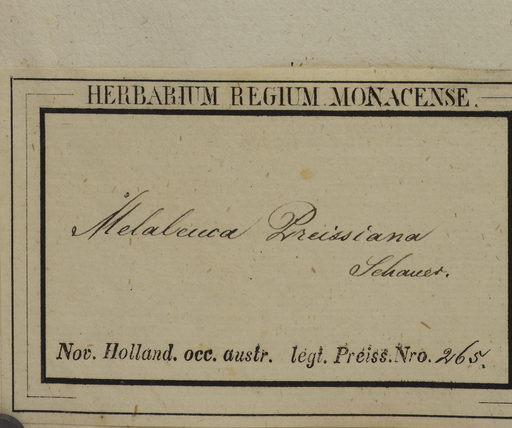 HERBARIUM REGIUM MONACENSE.
Melaleuca Preissiana
Schauer.
Nov. Holland. occ. austr. legt. Preiss. Nro. 265.